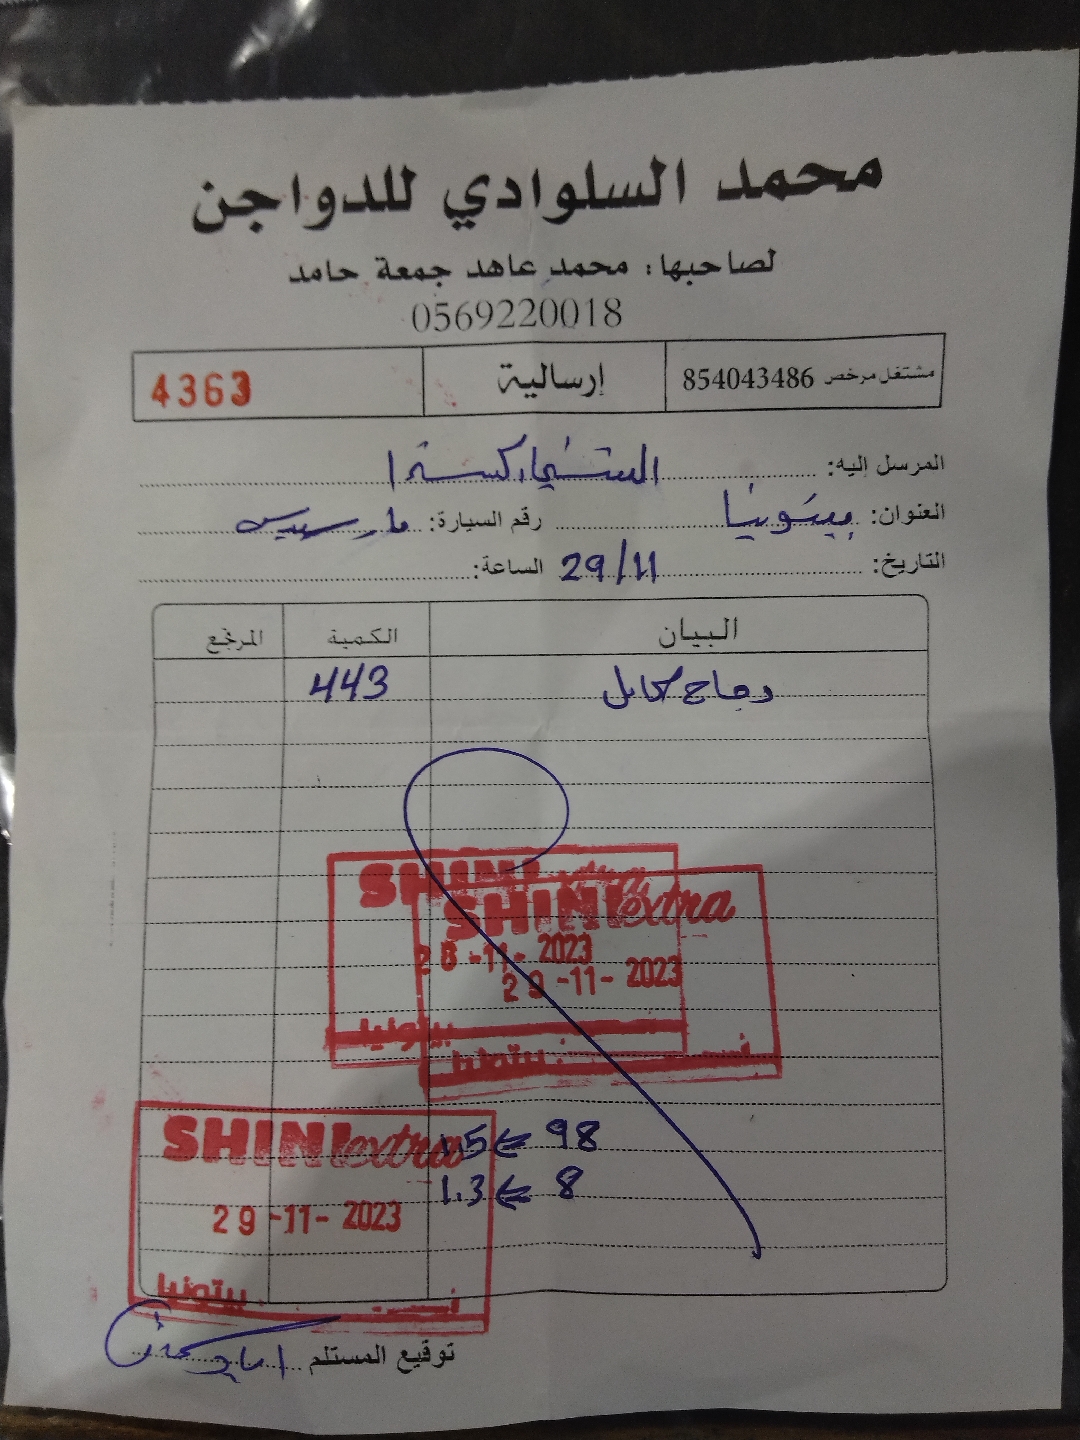 محمد السلوادي للدواجن
لصاحبها: محمد عاهد جمعة حامد
0569220018
مشتغل مرخص 854043486 إرسالية 4363
المرسل اليه: الشني اكسترا
العنوان: بيتونيا رقم السيارة: مارسيدس
التاريخ: 29/11 الساعة:
البيان الكمية المرتجع
دجاج كامل 443
SHINI extra
SHINI extra
28-11-2023
29-11-2023
بيتونيا
بيتونيا
98 ⇐ 1.5
8 ⇐ 1.3
SHINI extra
29-11-2023
بيتونيا
توقيع المستلم